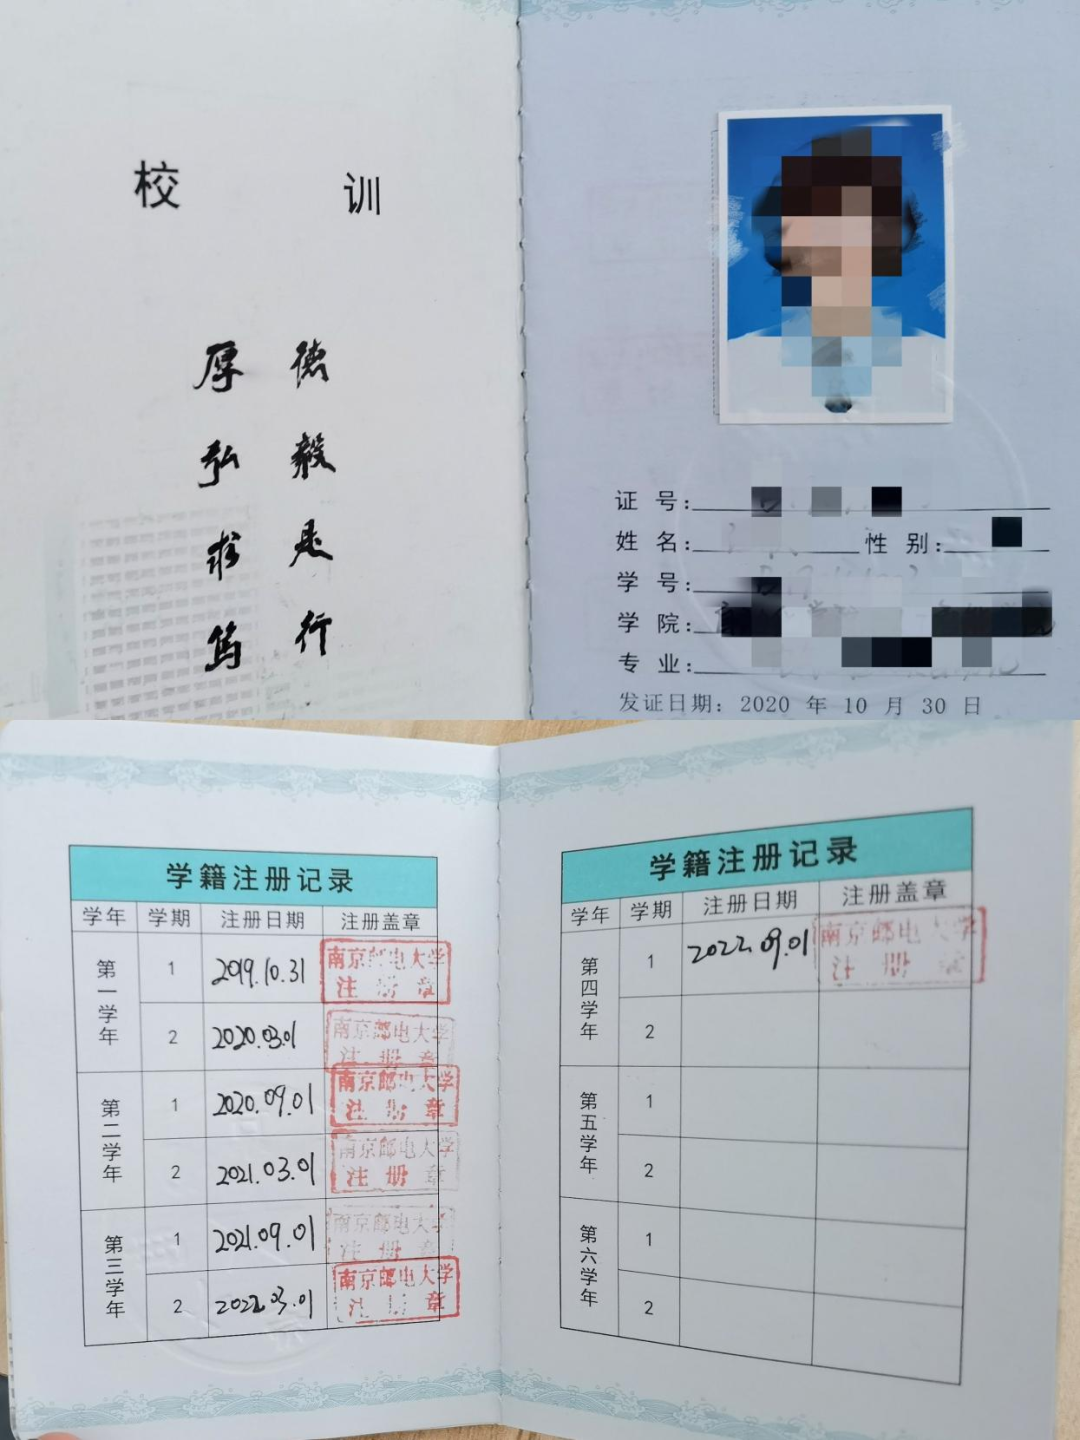 校 训
厚 德
弘 毅
求 是
笃 行
证 号:
姓 名: 性 别:
学 号:
学 院:
专 业:
发证日期: 2020 年 10 月 30 日
学籍注册记录
学年 学期 注册日期 注册盖章
第一学年 1 2019.10.31 南京邮电大学 注册章
2 2020.03.01 南京邮电大学 注册章
第二学年 1 2020.09.01 南京邮电大学 注册章
2 2021.03.01 南京邮电大学 注册章
第三学年 1 2021.09.01 南京邮电大学 注册章
2 2022.03.01 南京邮电大学 注册章
学籍注册记录
学年 学期 注册日期 注册盖章
第四学年 1 2022.09.01 南京邮电大学 注册章
2
第五学年 1
2
第六学年 1
2